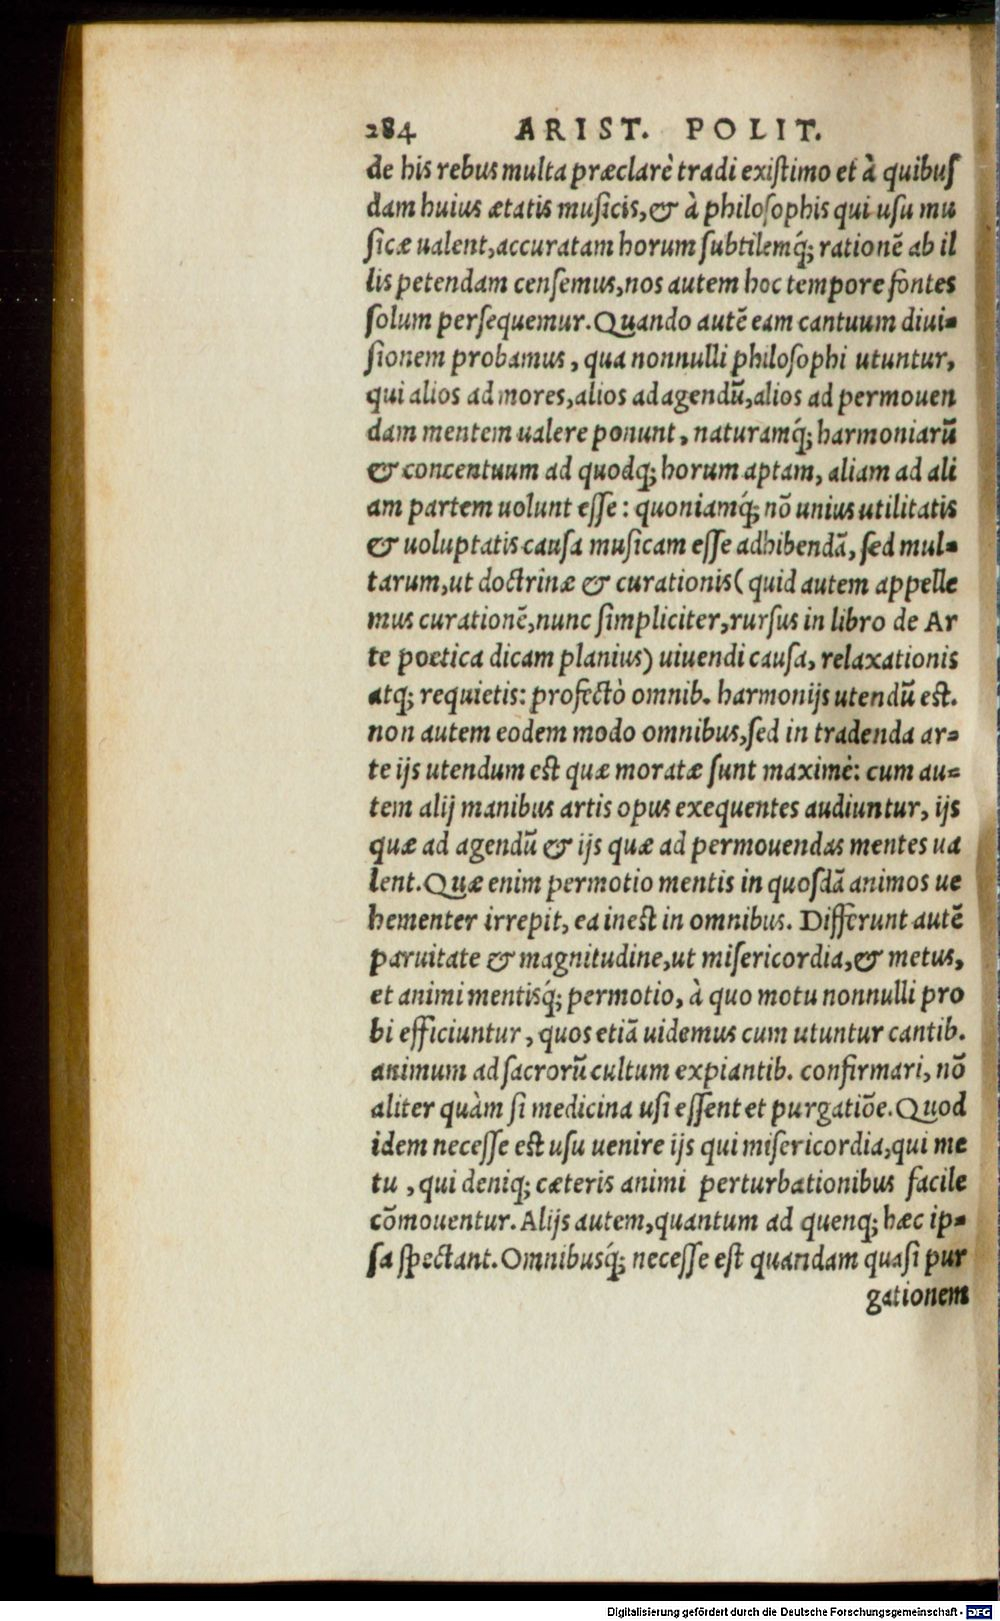 284 ARIST. POLIT.
de his rebus multa præclarè tradi existimo et à quibuſ
dam huius ætatis muſicis, & à philoſophis qui uſu mu
ſicæ ualent, accuratam horum ſubtilemq́; rationẽ ab il
lis petendam cenſemus, nos autem hoc tempore fontes
ſolum perſequemur. Quando autẽ eam cantuum diui-
ſionem probamus, qua nonnulli philoſophi utuntur,
qui alios ad mores, alios ad agendũ, alios ad permouen
dam mentem ualere ponunt, naturamq́; harmoniarũ
& concentuum ad quodq; horum aptam, aliam ad ali
am partem uolunt eſſe: quoniamq́; nõ unius utilitatis
& uoluptatis cauſa muſicam eſſe adhibendã, ſed mul-
tarum, ut doctrinæ & curationis (quid autem appelle
mus curationẽ, nunc ſimpliciter, rurſus in libro de Ar
te poetica dicam planius) uiuendi cauſa, relaxationis
atq; requietis: profectò omnib. harmonijs utendũ est.
non autem eodem modo omnibus, ſed in tradenda ar-
te ijs utendum est quæ moratæ ſunt maximè: cum au-
tem alij manibus artis opus exequentes audiuntur, ijs
quæ ad agendũ & ijs quæ ad permouendas mentes ua
lent. Quæ enim permotio mentis in quoſdã animos ue
hementer irrepit, ea inest in omnibus. Differunt autẽ
paruitate & magnitudine, ut miſericordia, & metus,
et animi mentisq́; permotio, à quo motu nonnulli pro
bi efficiuntur, quos etiã uidemus cum utuntur cantib.
animum ad ſacrorũ cultum expiantib. confirmari, nõ
aliter quàm ſi medicina uſi eſſent et purgatiõe. Quod
idem neceſſe est uſu uenire ijs qui miſericordia, qui me
tu, qui deniq; cæteris animi perturbationibus facile
cõmouentur. Alijs autem, quantum ad quenq; hæc ip-
ſa ſpectant. Omnibusq́; neceſſe eſt quandam quaſi pur
gationem
Digitalisierung gefördert durch die Deutsche Forschungsgemeinschaft - DFG